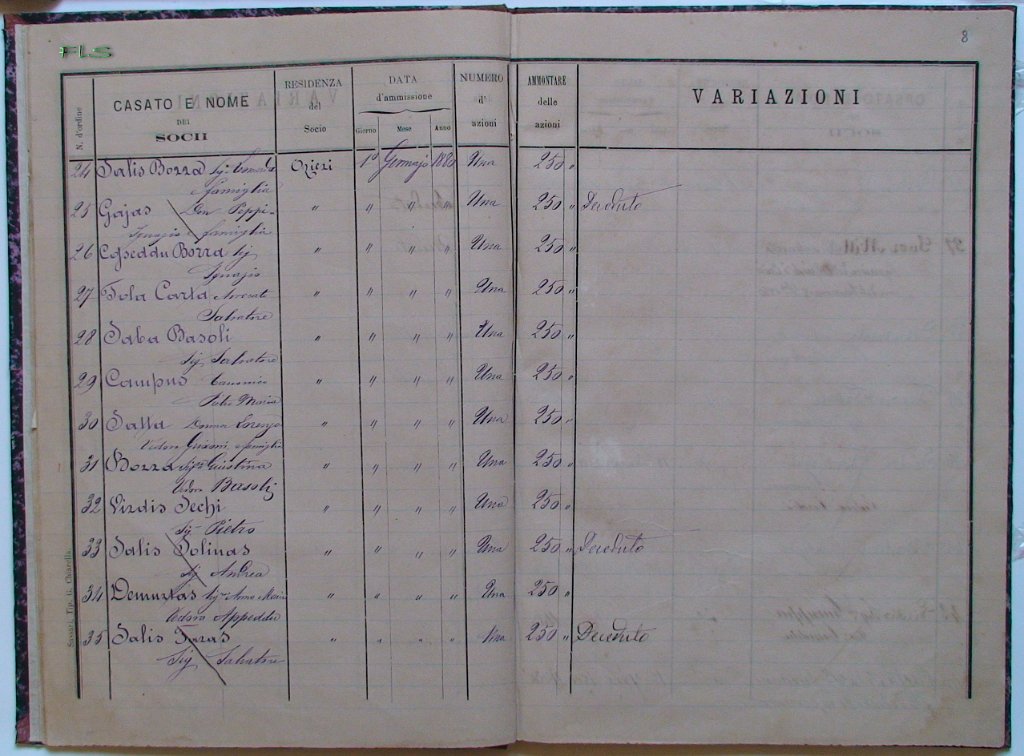 FLS
8
N. d'ordine
CASATO E NOME
DEI
SOCII
RESIDENZA
del
Socio
DATA
d'ammissione
Giorno Mese Anno
NUMERO
d'
azioni
AMMONTARE
delle
azioni
VARIAZIONI
24 Salis Borra Sig. Ozieri 1° Gennajo 1880 Una 250 "
famiglia
25 Gajas Don Peppi- " " " " Una 250 " Deceduto
Ignazio e famiglia
26 Cosseddu Borra Sig. " " " " Una 250 "
Ignazio
27 Tola Carta Avvocato " " " " Una 250 "
Salvatore
28 Saba Basoli " " " " Una 250 "
Sig. Salvatore
29 Campus Canonico " " " " Una 250 "
Maria
30 Satta Donna " " " " Una 250 "
Vedova e famiglia
31 Borra Sig.ra Giustina " " " " Una 250 "
Vedova Basoli
32 Virdis Sechi " " " " Una 250 "
Sig. Pietro
33 Salis Solinas " " " " Una 250 " Deceduto
Sig. Andrea
34 Demurtas Sig.ra Anna Maria " " " " Una 250 "
Vedova Appeddu
35 Salis " " " " Una 250 " Deceduto
Sig. Salvatore
Sassari, Tip. G. Chiarella.